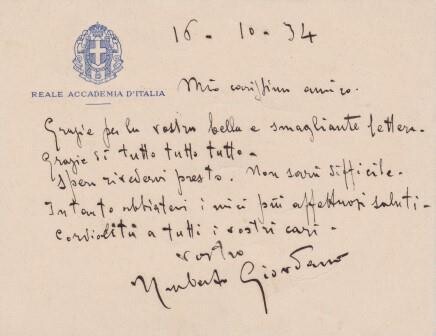 16 - 10 - 34
REALE ACCADEMIA D'ITALIA
Mio carissimo amico.
Grazie per la vostra bella e smagliante lettera.
Grazie di tutto tutto tutto -
Spero rivedervi presto. Non sarà difficile.
Intanto abbiatevi i miei più affettuosi saluti -
Cordialità a tutti i vostri cari -
Vostro
Umberto Giordano